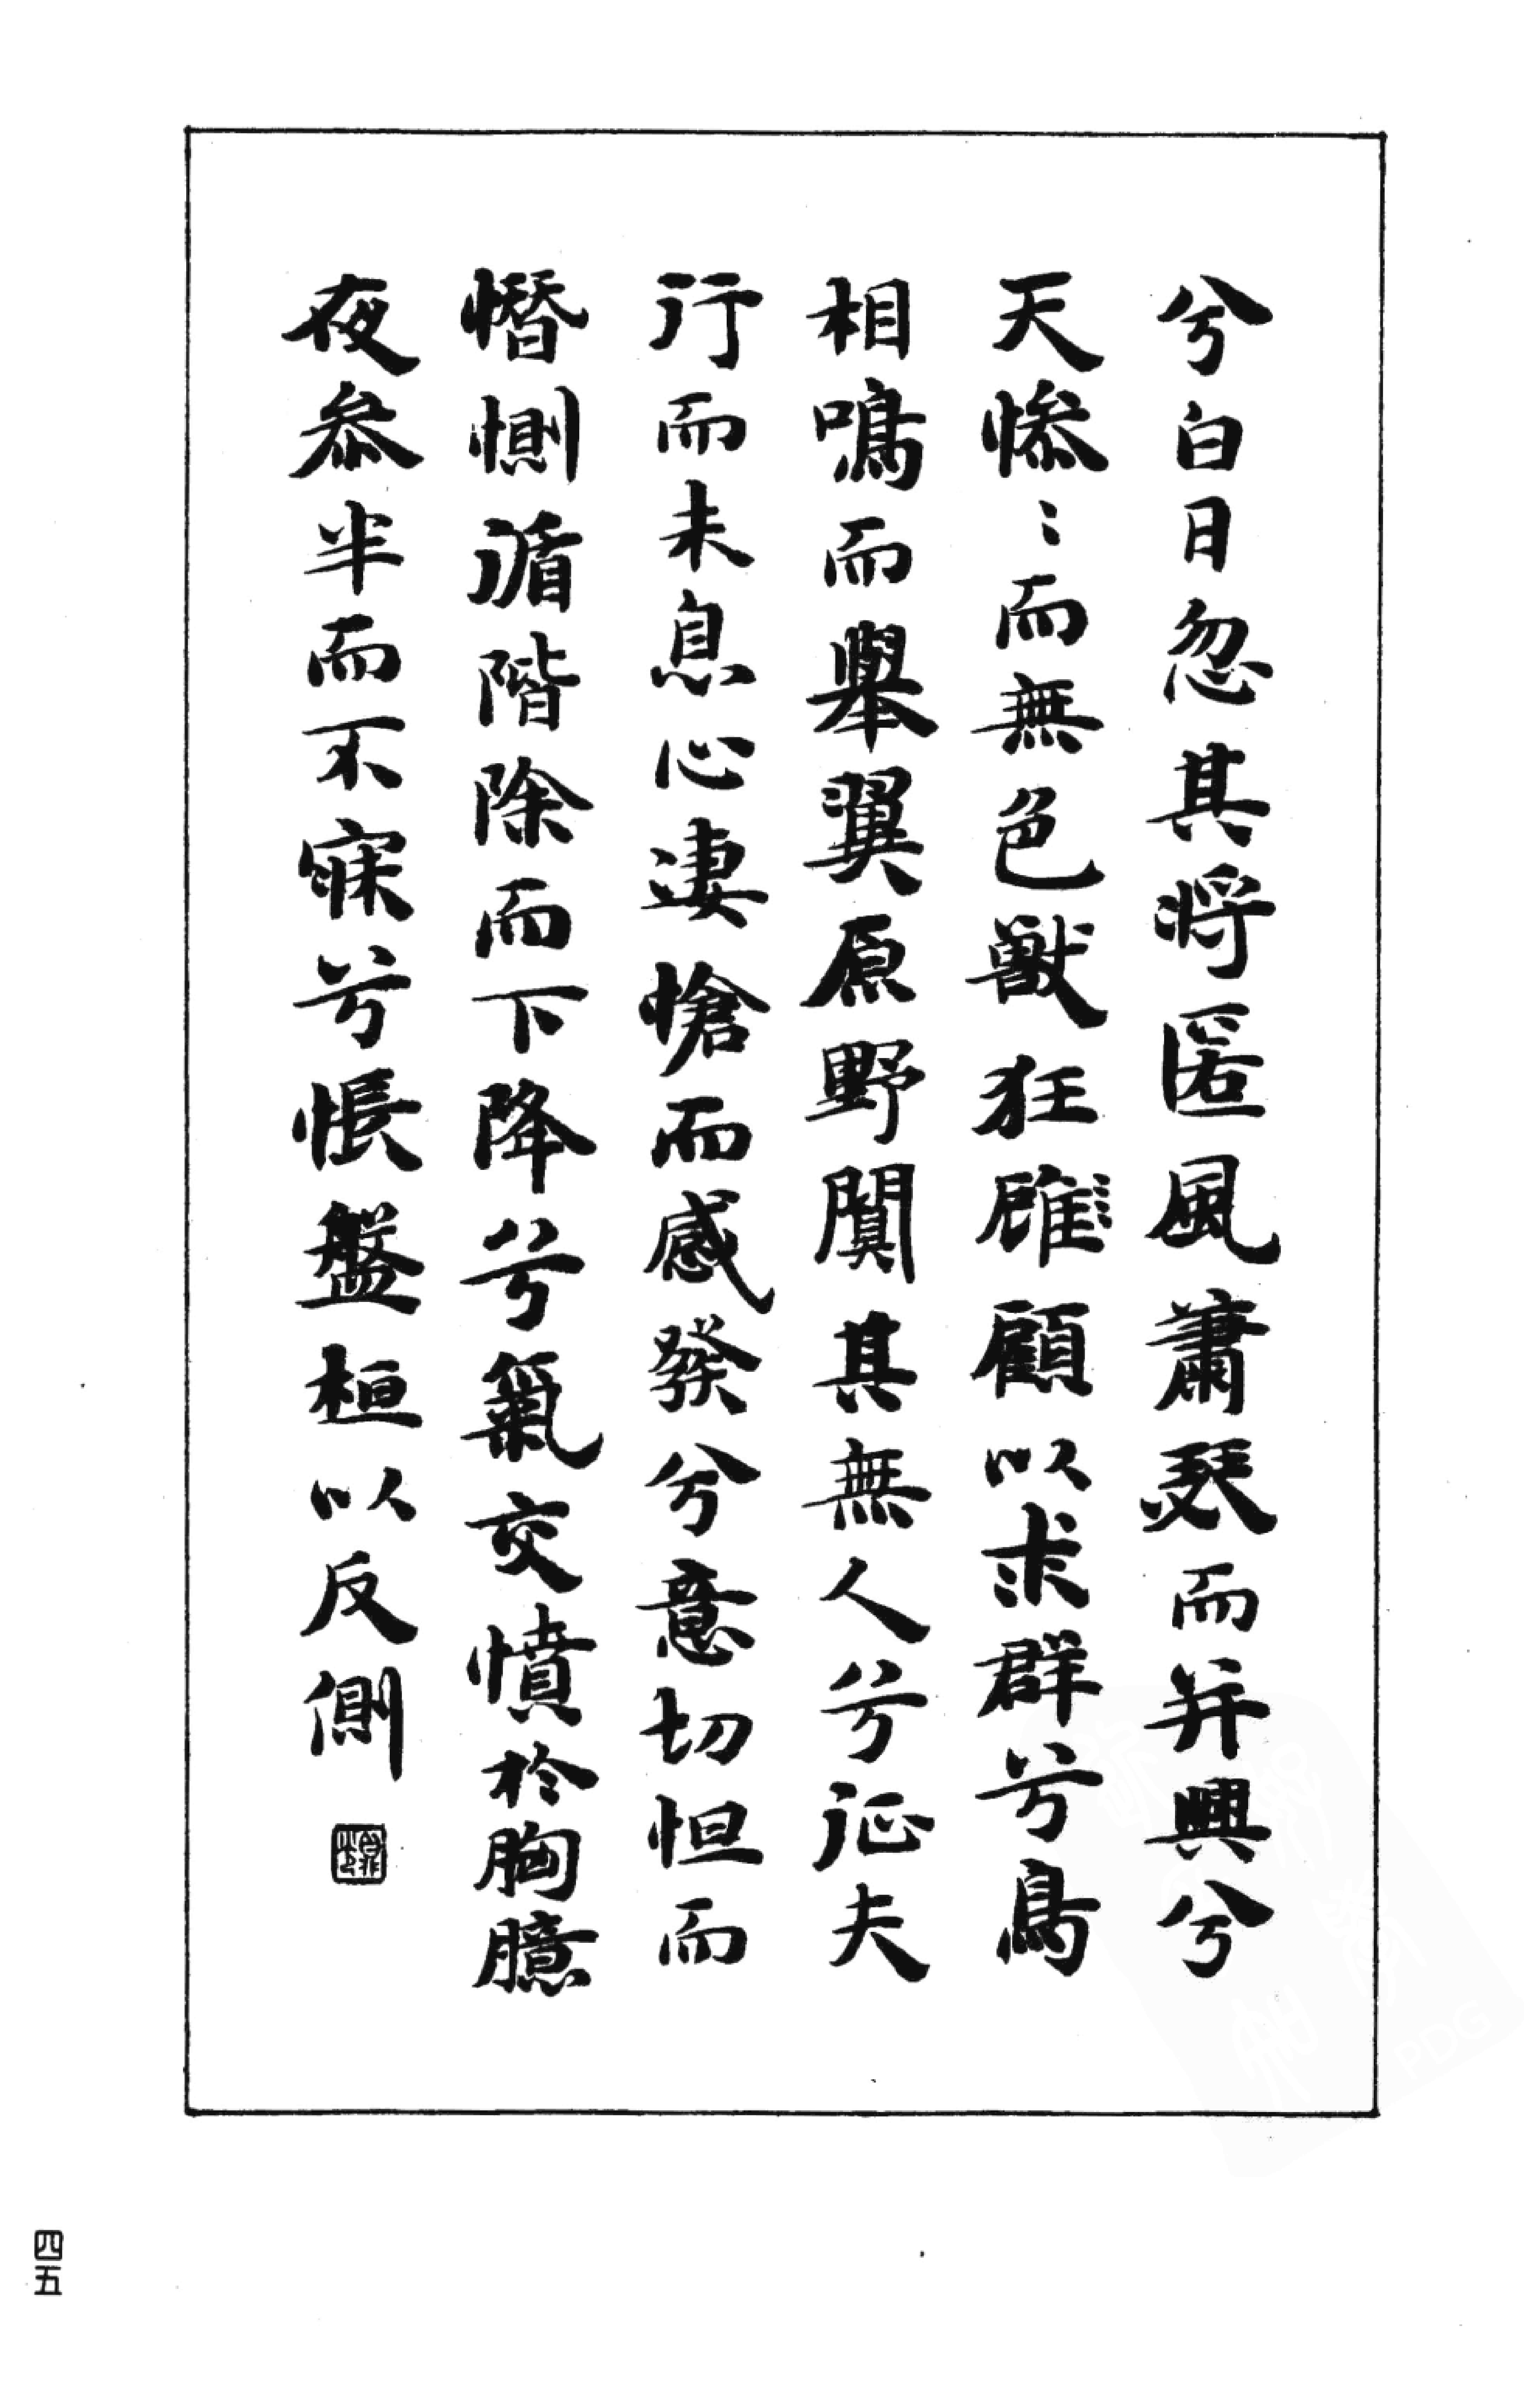 兮白日忽其将匿風蕭瑟而并興兮
天惨〻而無色獸狂雎顧以求群兮鳥
相鳴而舉翼原野闃其無人兮征夫
行而未息心悽愴而感發兮意切怛而
憯惻循階除而下降兮氣交憤於胸臆
夜叅半而不寐兮悵盤桓以反側
四五